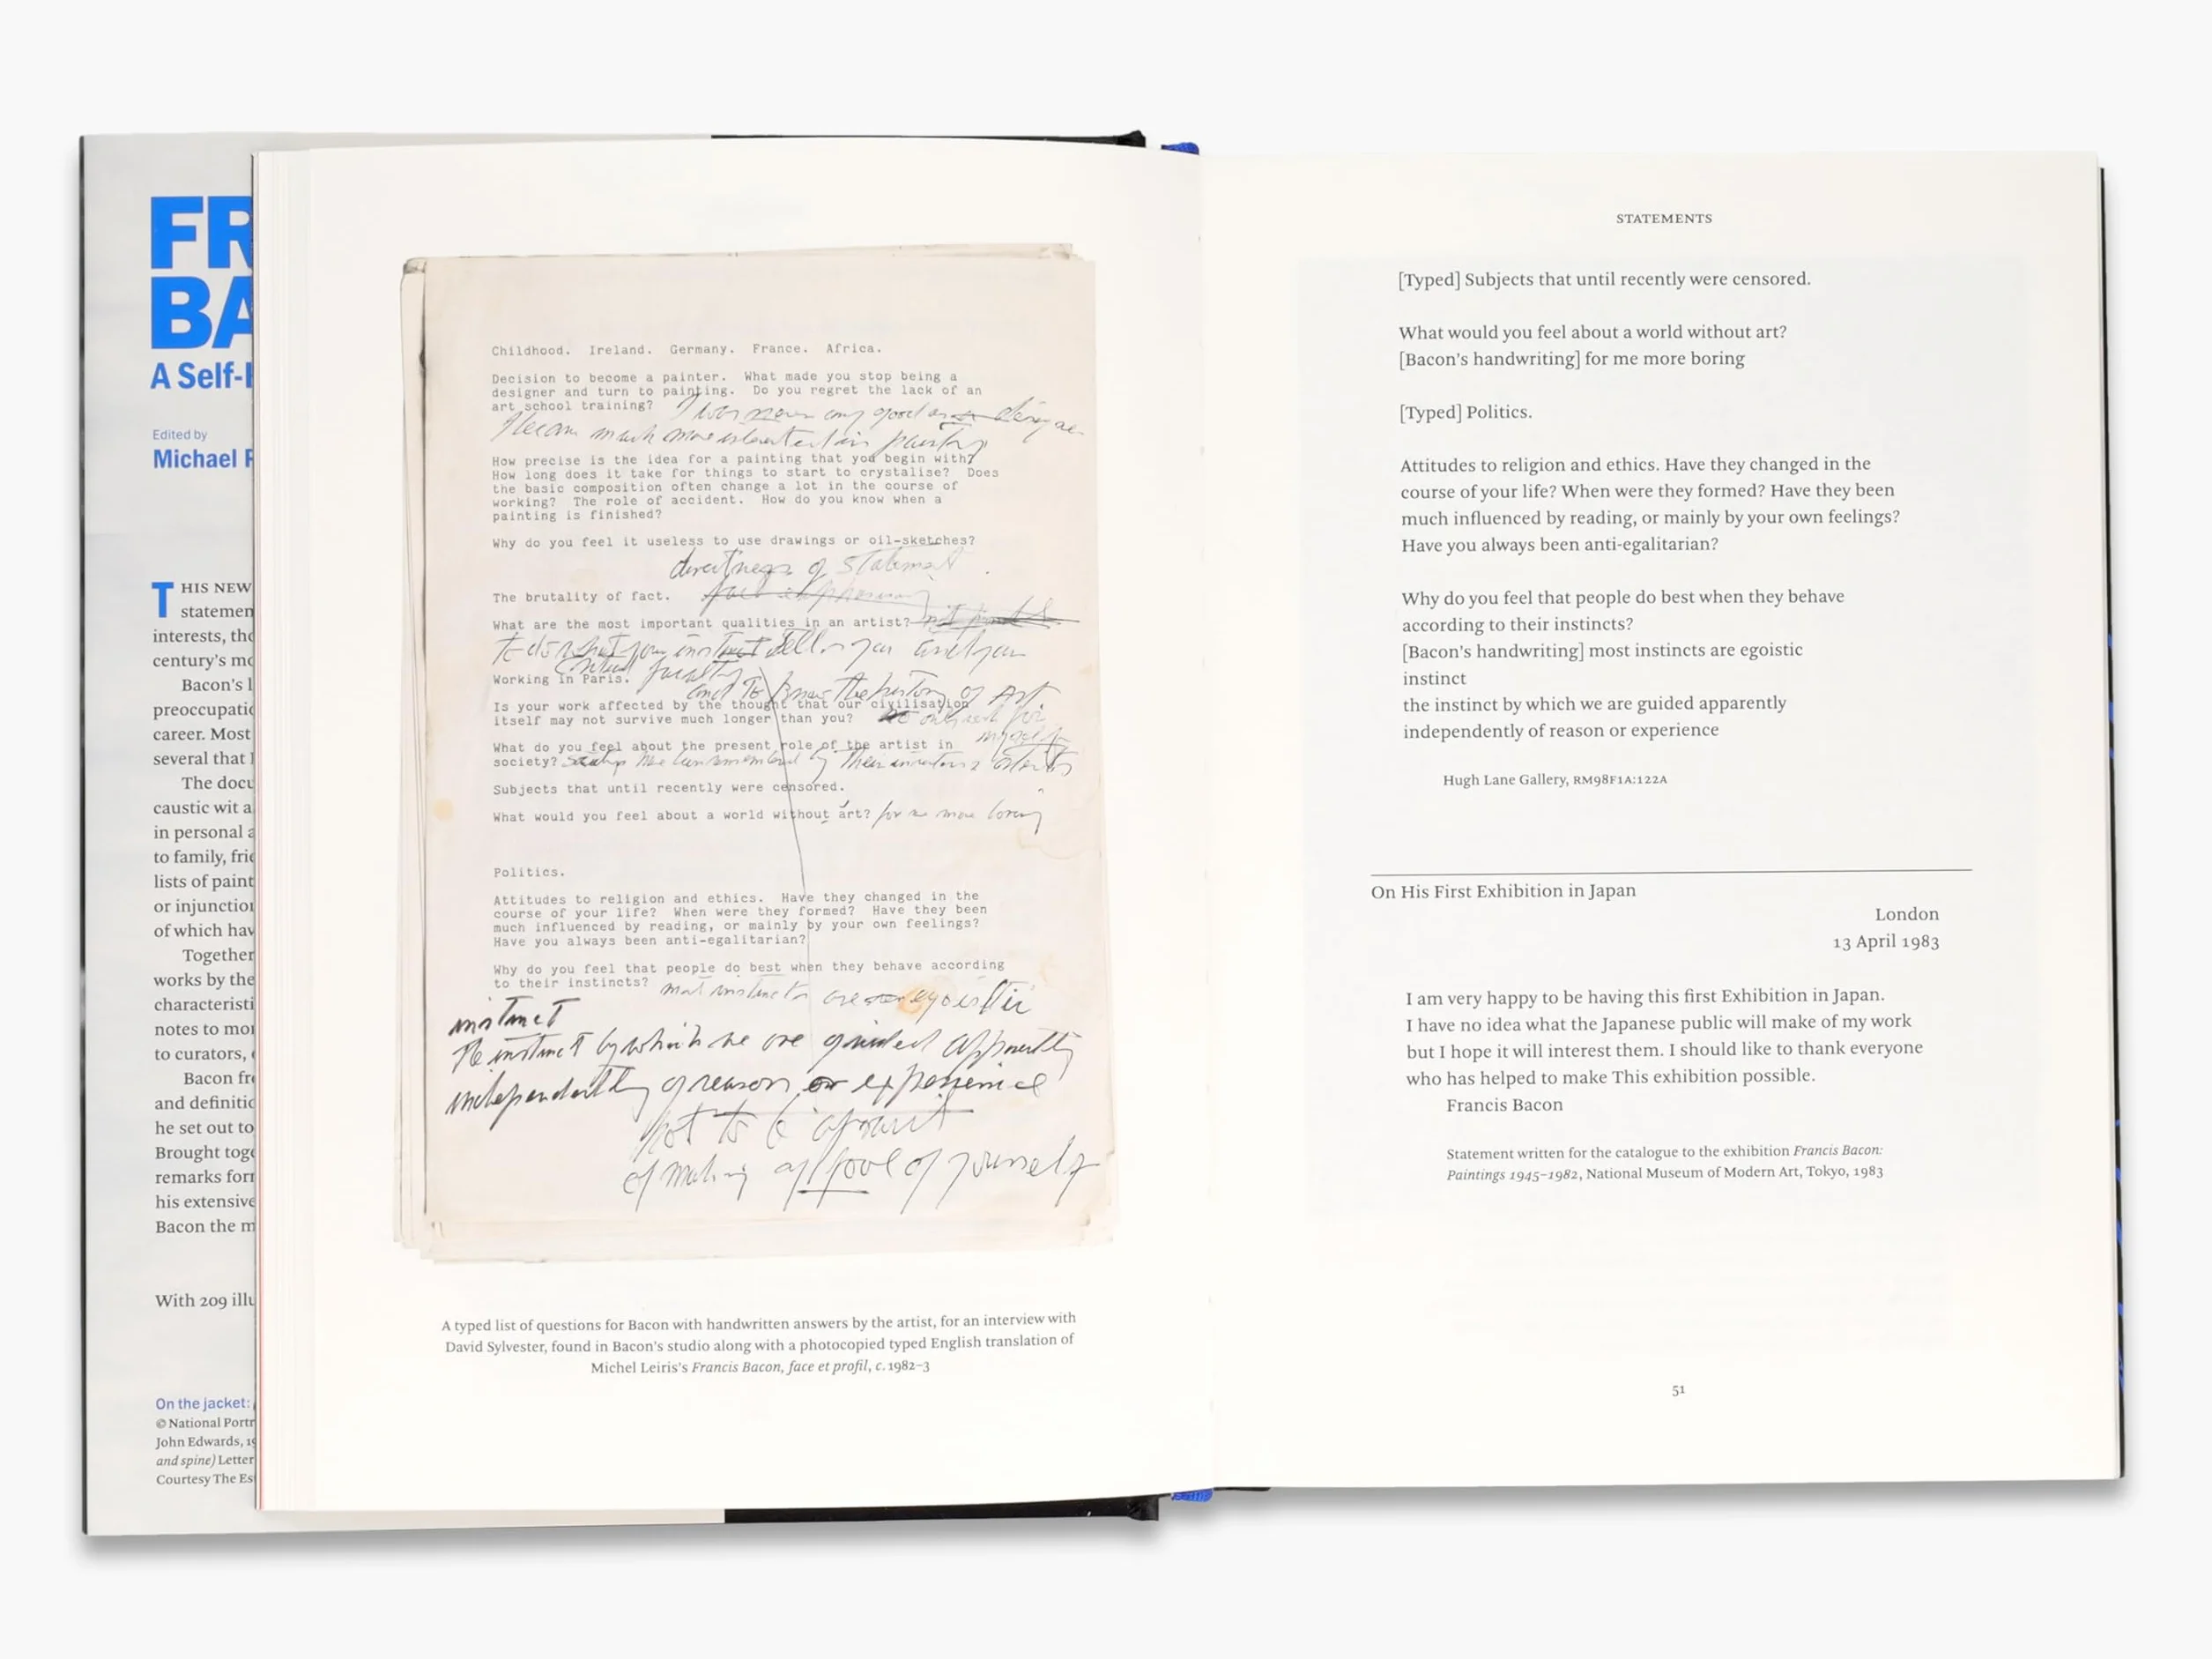 FR
BA
A Self-
Edited by
Michael
THIS NEW
statemen
interests, the
century's mo
Bacon's l
preoccupatio
career. Most
several that
The docu
caustic wit a
in personal a
to family, frie
lists of paint
or injunction
of which hav
Together
works by the
characteristi
notes to mor
to curators,
Bacon fre
and definitio
he set out to
Brought toge
remarks forr
his extensive
Bacon the m
With 209 illu
On the jacket:
© National Portr
John Edwards, 19
and spine) Letter
Courtesy The Es
Childhood. Ireland. Germany. France. Africa.
Decision to become a painter. What made you stop being a
designer and turn to painting. Do you regret the lack of an
art school training? I was never any good as a designer
I became much more interested in painting
How precise is the idea for a painting that you begin with?
How long does it take for things to start to crystalise? Does
the basic composition often change a lot in the course of
working? The role of accident. How do you know when a
painting is finished?
Why do you feel it useless to use drawings or oil-sketches?
directness of statement
The brutality of fact.
What are the most important qualities in an artist?
to do what your instinct tells you and your
critical faculty
Working in Paris.
and to know the history of Art
Is your work affected by the thought that our civilisation
itself may not survive much longer than you? no only work for
myself
What do you feel about the present role of the artist in
society? are remembered by their artists
Subjects that until recently were censored.
What would you feel about a world without art? for me more boring
Politics.
Attitudes to religion and ethics. Have they changed in the
course of your life? When were they formed? Have they been
much influenced by reading, or mainly by your own feelings?
Have you always been anti-egalitarian?
Why do you feel that people do best when they behave according
to their instincts? most instincts are egoistic
instinct
the instinct by which we are guided apparently
independently of reason or experience
not to be afraid
of making a fool of yourself
A typed list of questions for Bacon with handwritten answers by the artist, for an interview with
David Sylvester, found in Bacon's studio along with a photocopied typed English translation of
Michel Leiris's Francis Bacon, face et profil, c. 1982–3
STATEMENTS
[Typed] Subjects that until recently were censored.
What would you feel about a world without art?
[Bacon's handwriting] for me more boring
[Typed] Politics.
Attitudes to religion and ethics. Have they changed in the
course of your life? When were they formed? Have they been
much influenced by reading, or mainly by your own feelings?
Have you always been anti-egalitarian?
Why do you feel that people do best when they behave
according to their instincts?
[Bacon's handwriting] most instincts are egoistic
instinct
the instinct by which we are guided apparently
independently of reason or experience
Hugh Lane Gallery, RM98F1A:122A
On His First Exhibition in Japan
London
13 April 1983
I am very happy to be having this first Exhibition in Japan.
I have no idea what the Japanese public will make of my work
but I hope it will interest them. I should like to thank everyone
who has helped to make This exhibition possible.
Francis Bacon
Statement written for the catalogue to the exhibition Francis Bacon:
Paintings 1945–1982, National Museum of Modern Art, Tokyo, 1983
51